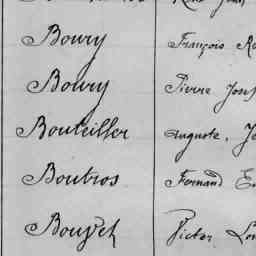 Boury François
Boury Pierre
Bouteiller Auguste,
Boutros Fernand
Bouvet Victor